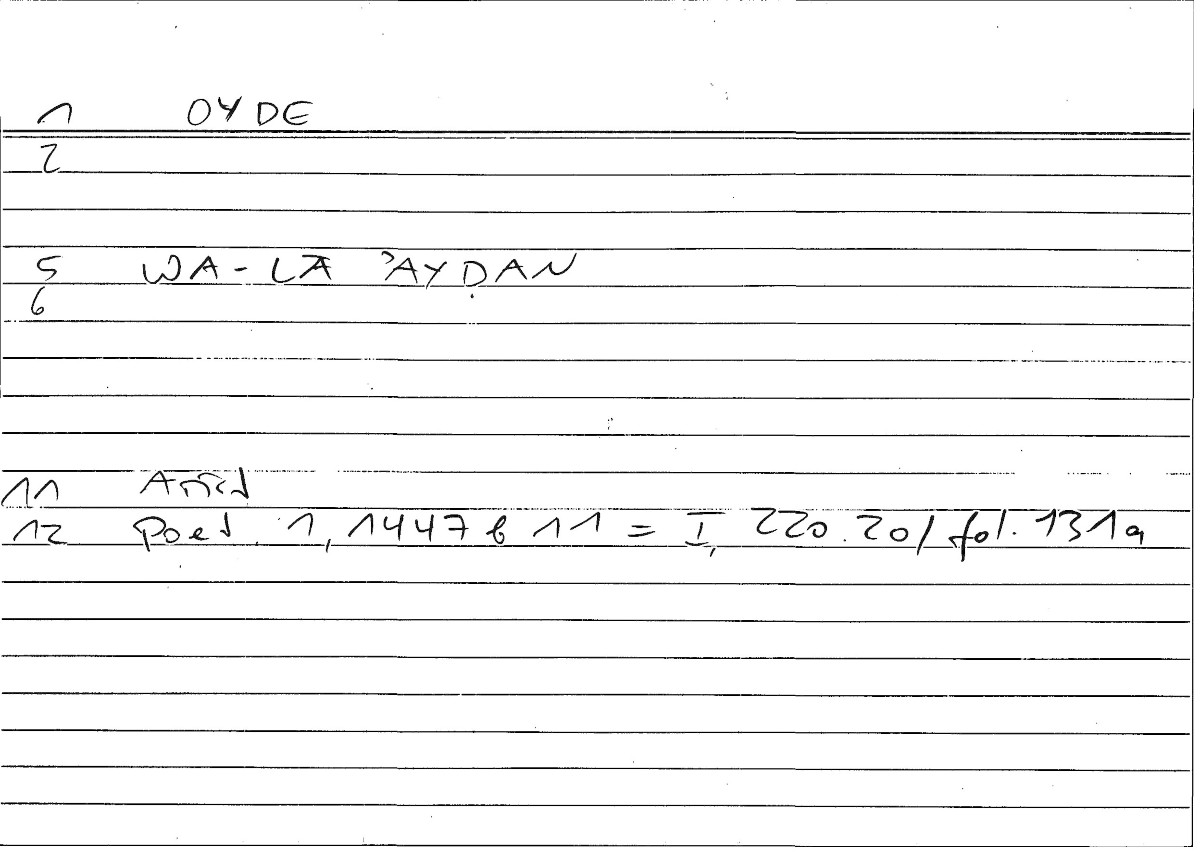 1 OYDE
2
5 WA-LĀ ʾAYḌAN
6
11 Arist
12 Poet. 1, 1447 b 11 = I, 220.20/ fol. 131a